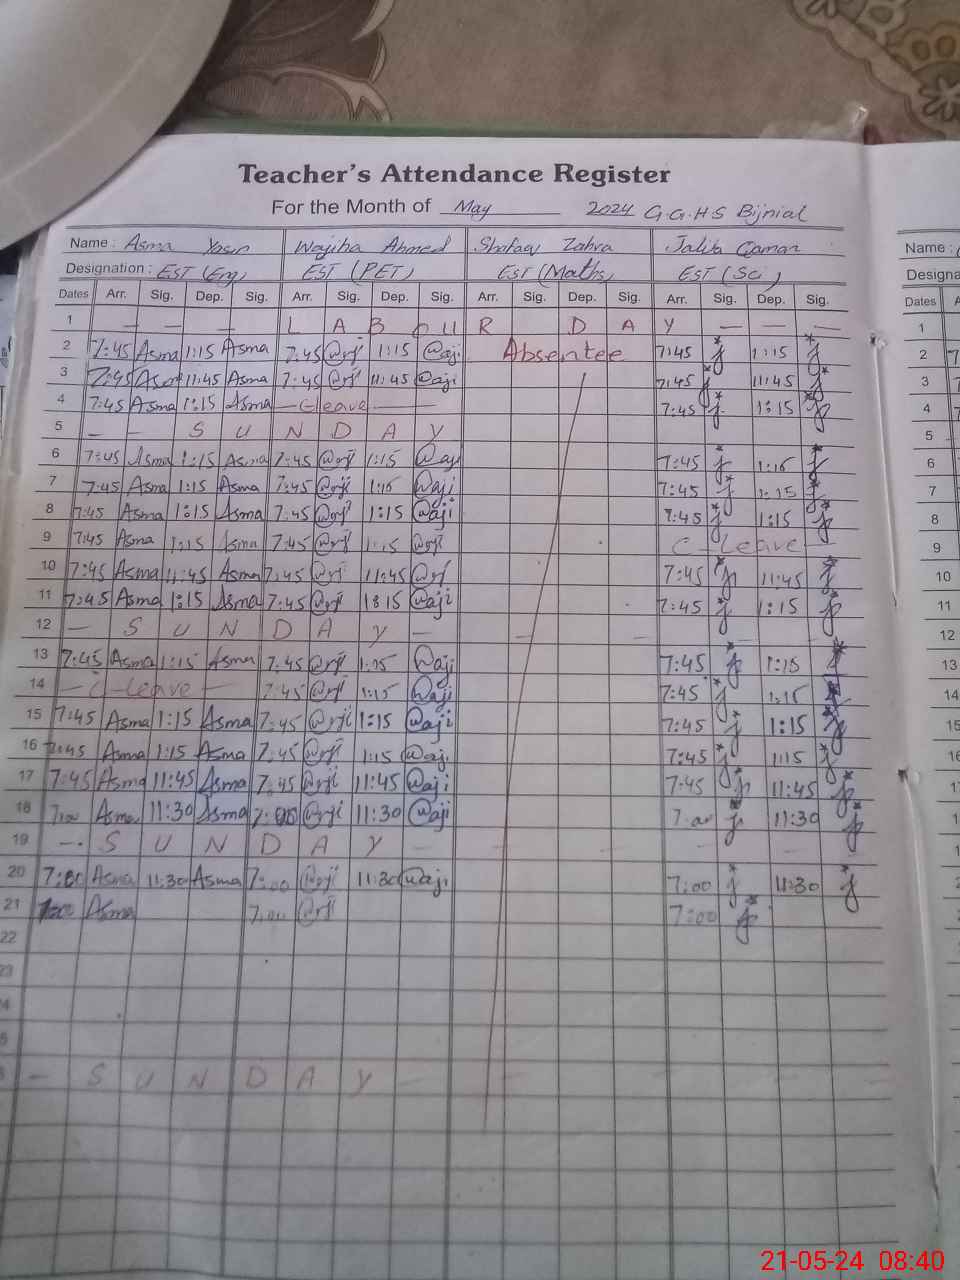 Teacher's Attendance Register
For the Month of May 2024 G.G.H.S Bijnial
Name : Asma Yasin Wajiha Ahmed Shafaq Zahra Jaliba Qamar
Name :
Designation : EST (Eng) EST (PET) EST (Maths) EST (Sci)
Designa
Dates Arr. Sig. Dep. Sig. Arr. Sig. Dep. Sig. Arr. Sig. Dep. Sig. Arr. Sig. Dep. Sig.
Dates A
1 — — — L A B O U R D A Y — — —
1
2 7:45 Asma 1:15 Asma 7:45 1:15 Waji Absentee 7:45 1:15
2 7
3 7:45 Asma 11:45 Asma 7:45 11:45 Waji 7:45 11:45
3 7
4 7:45 Asma 1:15 Asma — C-leave — 7:45 1:15
4 7
5 — — S U N D A Y
5
6 7:45 Asma 1:15 Asma 7:45 1:15 Waji 7:45 1:15
6
7 7:45 Asma 1:15 Asma 7:45 1:15 Waji 7:45 1:15
7
8 7:45 Asma 1:15 Asma 7:45 1:15 Waji 7:45 1:15
8
9 7:45 Asma 1:15 Asma 7:45 1:15 C-Leave
9
10 7:45 Asma 11:45 Asma 7:45 11:45 7:45 11:45
10
11 7:45 Asma 1:15 Asma 7:45 1:15 Waji 7:45 1:15
11
12 — S U N D A Y —
12
13 7:45 Asma 1:15 Asma 7:45 1:15 Waji 7:45 1:15
13
14 — C-leave — 7:45 1:15 Waji 7:45 1:15
14
15 7:45 Asma 1:15 Asma 7:45 1:15 Waji 7:45 1:15
15
16 7:45 Asma 1:15 Asma 7:45 1:15 Waji 7:45 1:15
16
17 7:45 Asma 11:45 Asma 7:45 11:45 Waji 7:45 11:45
18 7:00 Asma 11:30 Asma 7:00 11:30 Waji 7:00 11:30
19 — S U N D A Y
20 7:00 Asma 11:30 Asma 7:00 11:30 Waji 7:00 11:30
21 7:00 Asma 7:00 7:00
22
23
— S U N D A Y
21-05-24 08:40